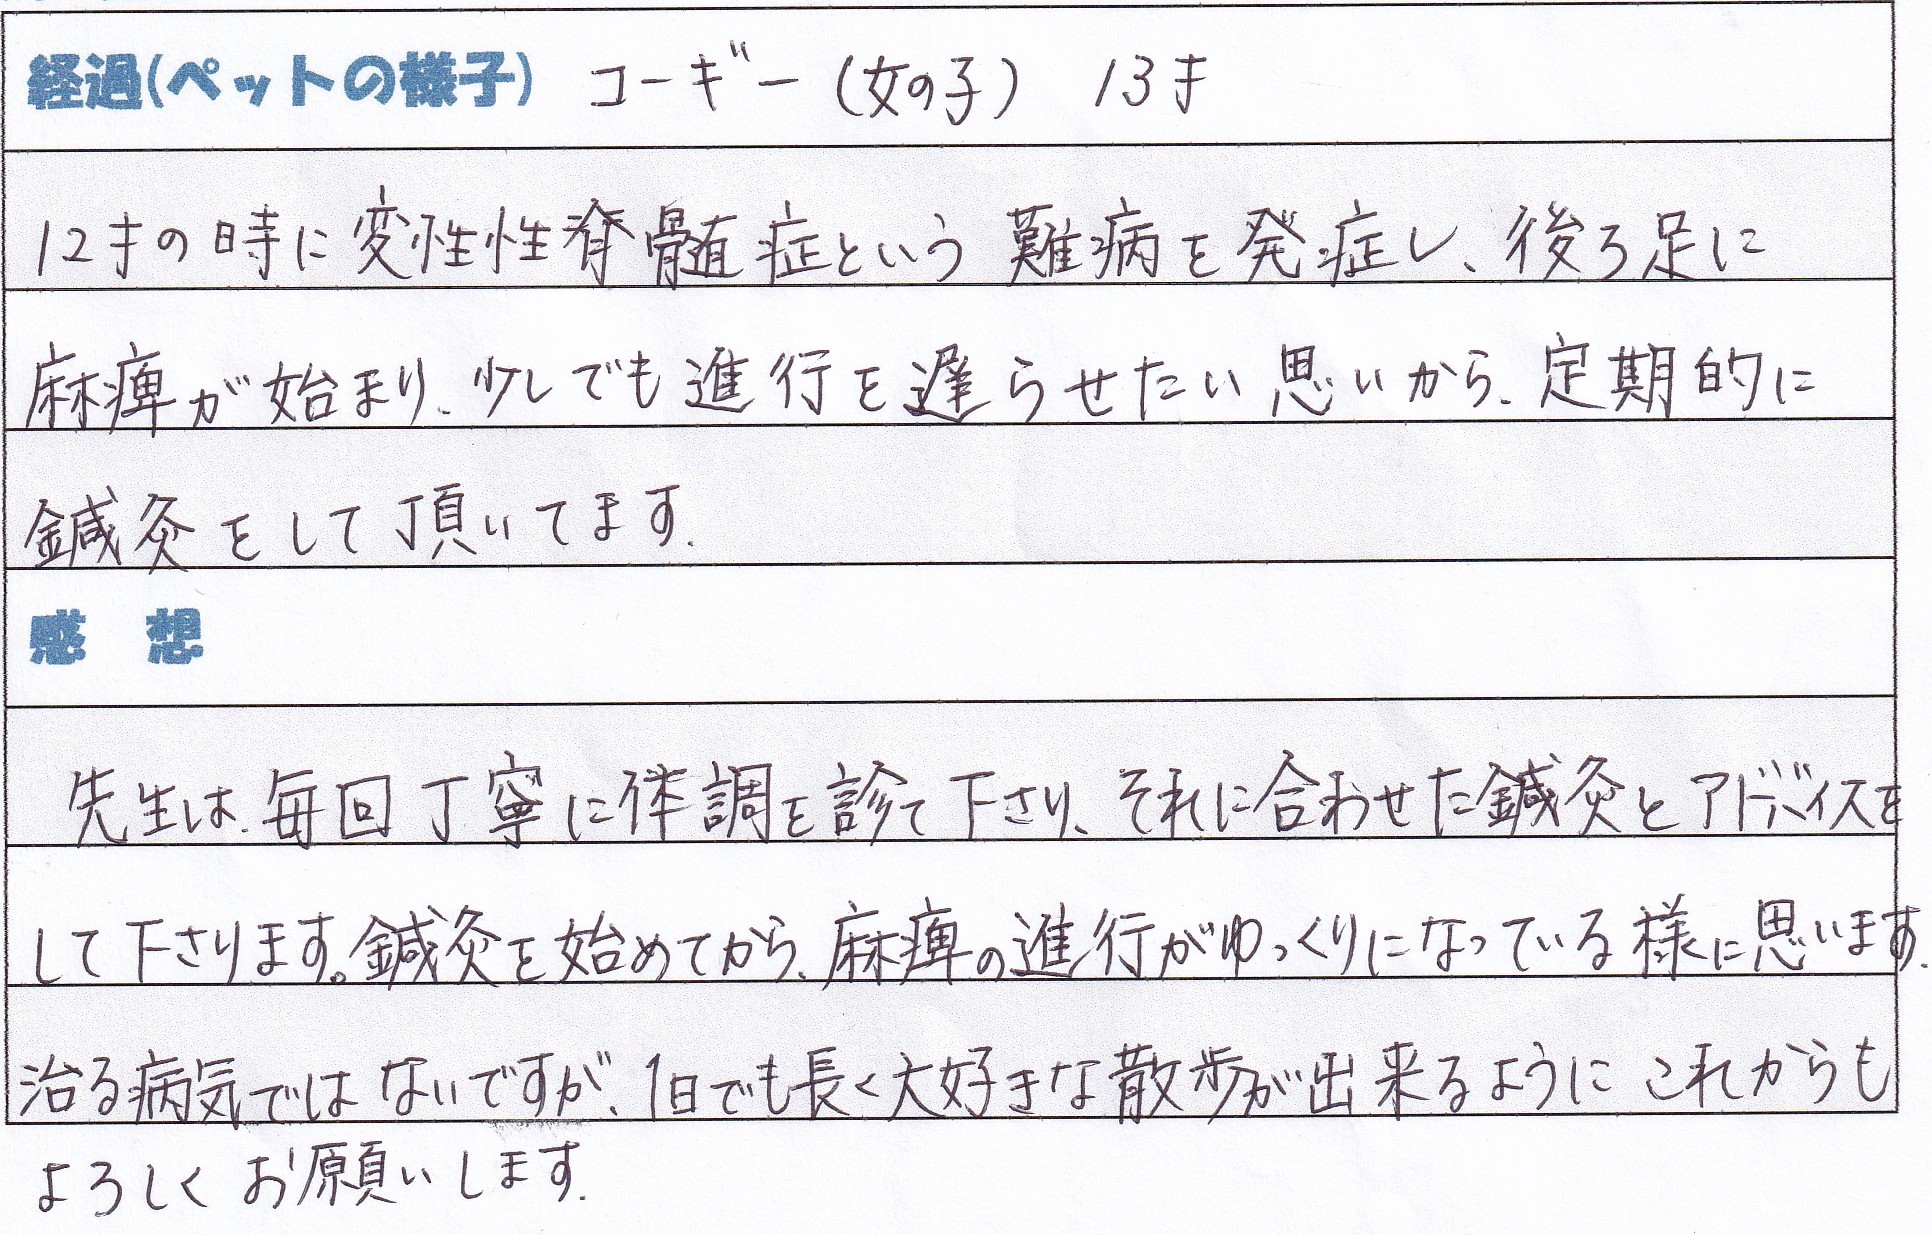 経過(ペットの様子) コーギー(女の子) 13才
12才の時に変性性脊髄症という難病を発症し、後ろ足に
麻痺が始まり、少しでも進行を遅らせたい思いから、定期的に
鍼灸をして頂いてます.
感 想
先生は、毎回丁寧に体調を診て下さり、それに合わせた鍼灸とアドバイスを
して下さります。鍼灸を始めてから、麻痺の進行がゆっくりになっている様に思います.
治る病気ではないですが、1日でも長く大好きな散歩が出来るようにこれからも
よろしくお願いします.